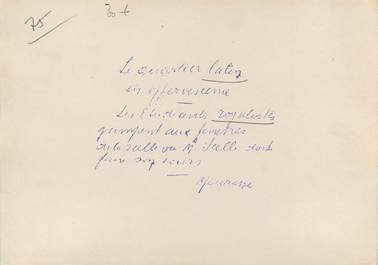 75
30 t
Le quartier latin
en effervescence
Les Etudiants royalistes
grimpent aux fenêtres
de la salle où Mr Scelle doit
faire son cours
Meurisse